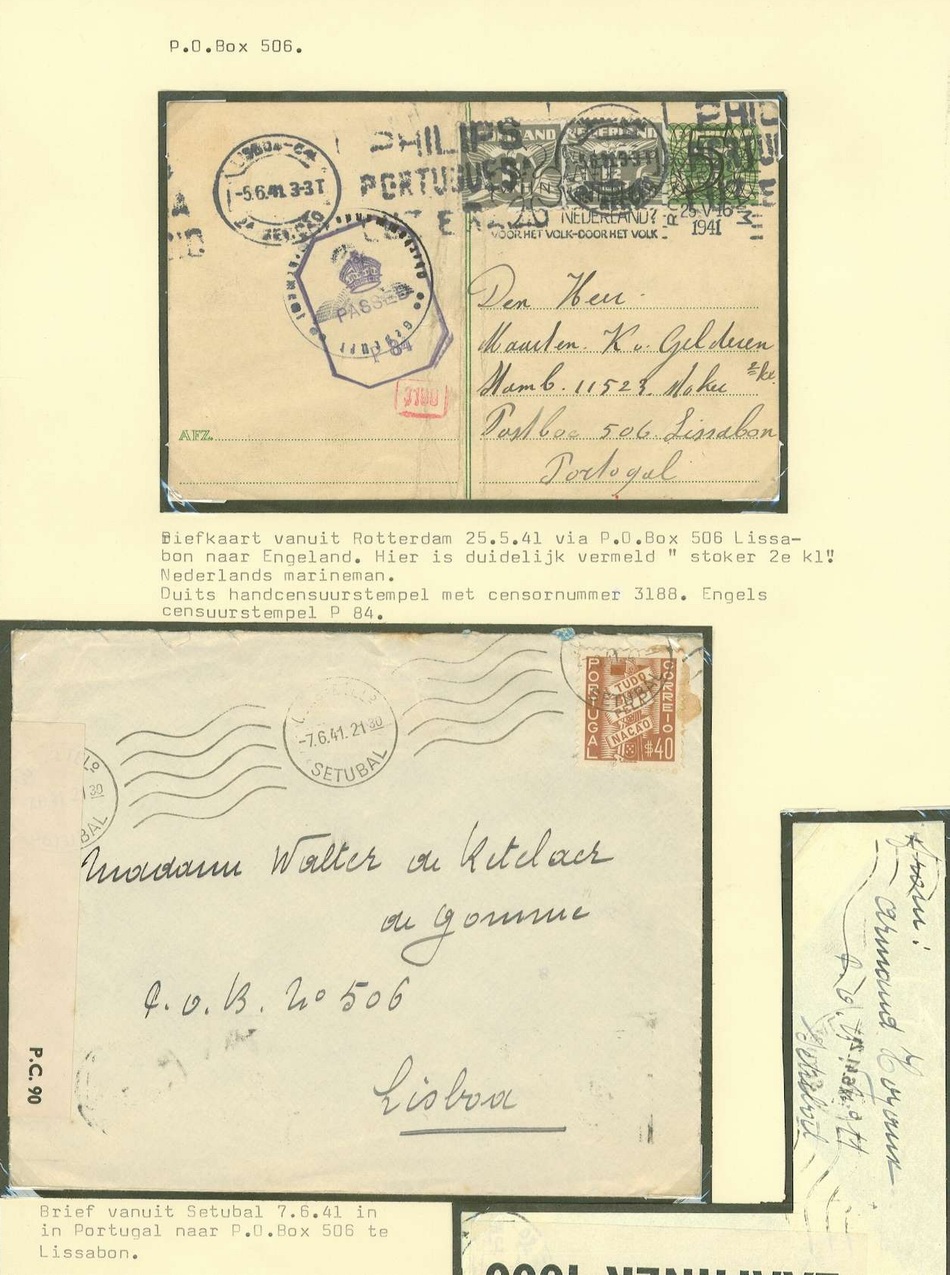 P.O.Box 506.
-5.6.41 3-3T
PHILIPS
PORTUGUESA
NEDERLAND
NEDERLAND?
VOOR HET VOLK-DOOR HET VOLK
25-V-16-
1941
PASSED
P 84
Den Heer
Maarten. K v. Gelderen
Stamb. 11523. stoker 2e kl.
Postboc 506. Lissabon
Portugal
AFZ.
Biefkaart vanuit Rotterdam 25.5.41 via P.O.Box 506 Lissa-
bon naar Engeland. Hier is duidelijk vermeld " stoker 2e kl"!
Nederlands marineman.
Duits handcensuurstempel met censornummer 3188. Engels
censuurstempel P 84.
-7.6.41. 21 30
SETUBAL
PORTUGAL
CORREIO
TUDO
PELA
NAÇÃO
$40
Madame Walter de Ketelaer
de Gomme
P.O.B. No 506
Lisboa
P.C. 90
From:
Armand
Setubal
Brief vanuit Setubal 7.6.41 in
in Portugal naar P.O.Box 506 te
Lissabon.